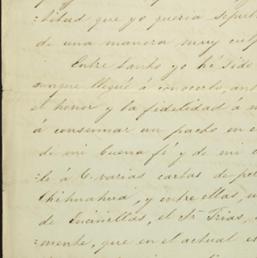 titud que yo queria sepult
de una manera muy culp
Entre tanto yo hé sido
aunque llegué á conocerlo, ant
el honor y la fidelidad á
á consumar un pacto en e
de mi buena fé y de mi c
lé á U. varias cartas de pe
Chihuahua, y entre ellas, u
de Encinillas, el Sr. Trias,
mente, que en el actual es